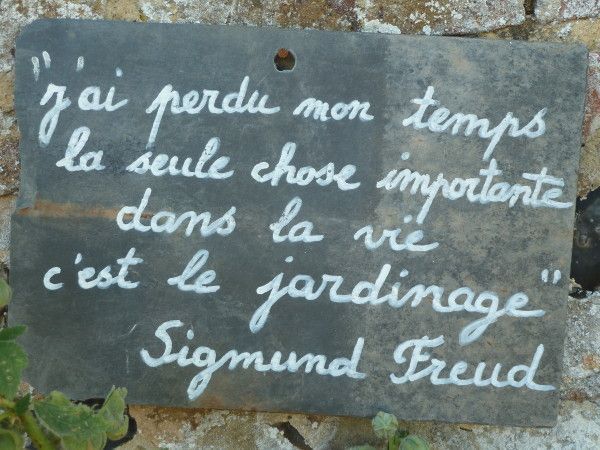 "j'ai perdu mon temps
la seule chose importante
dans la vie
c'est le jardinage"
Sigmund Freud